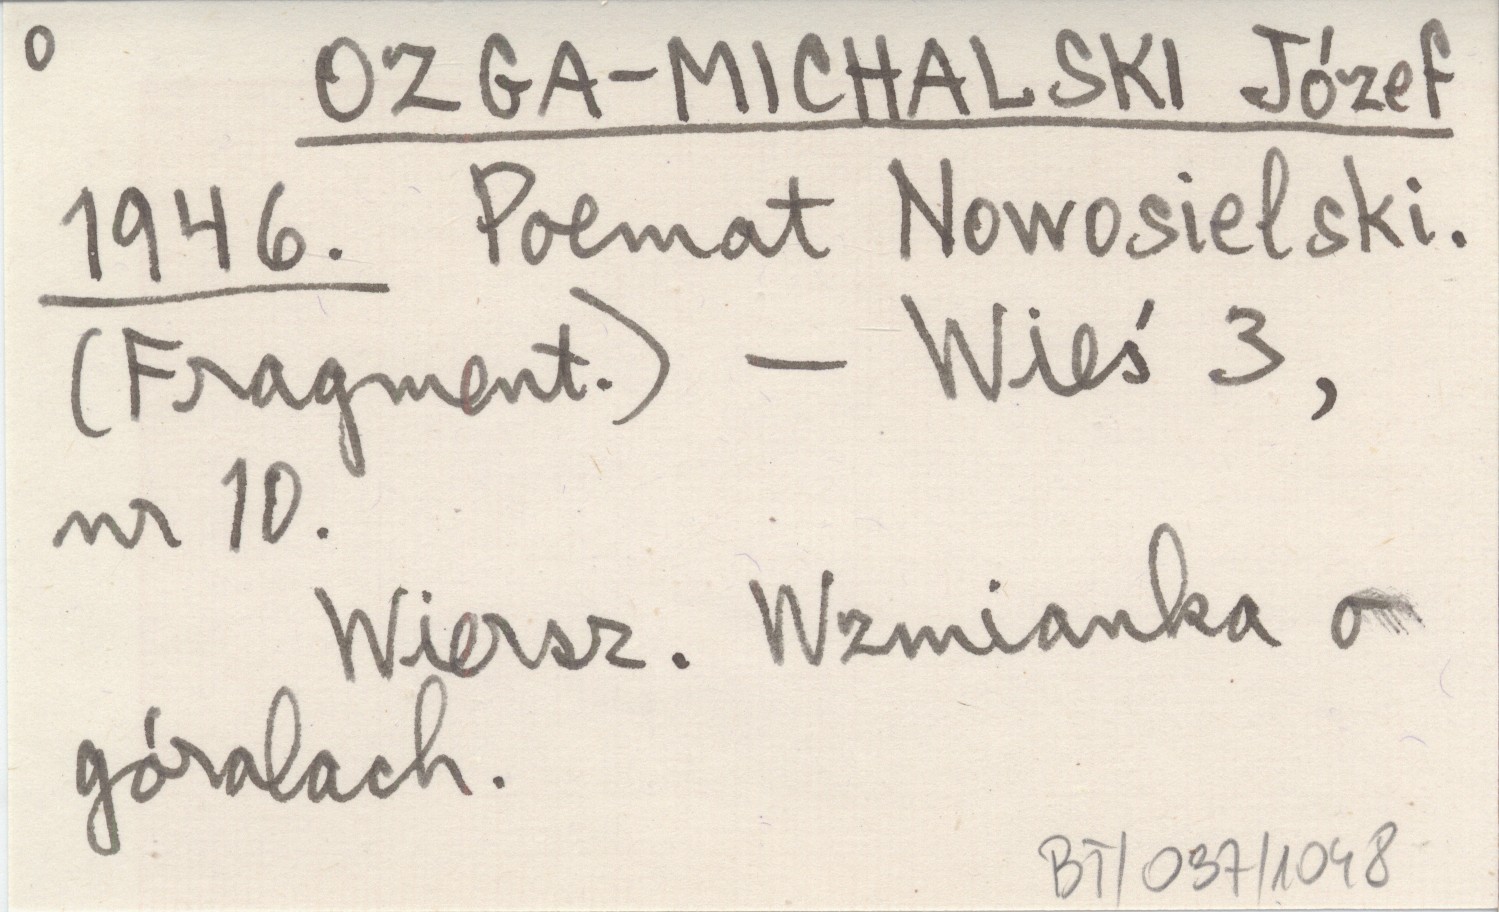 O
OZGA-MICHALSKI Józef
1946. Poemat Nowosielski.
(Fragment.) — Wieś 3,
nr 10.
Wiersz. Wzmianka o
góralach.
BT/037/1048